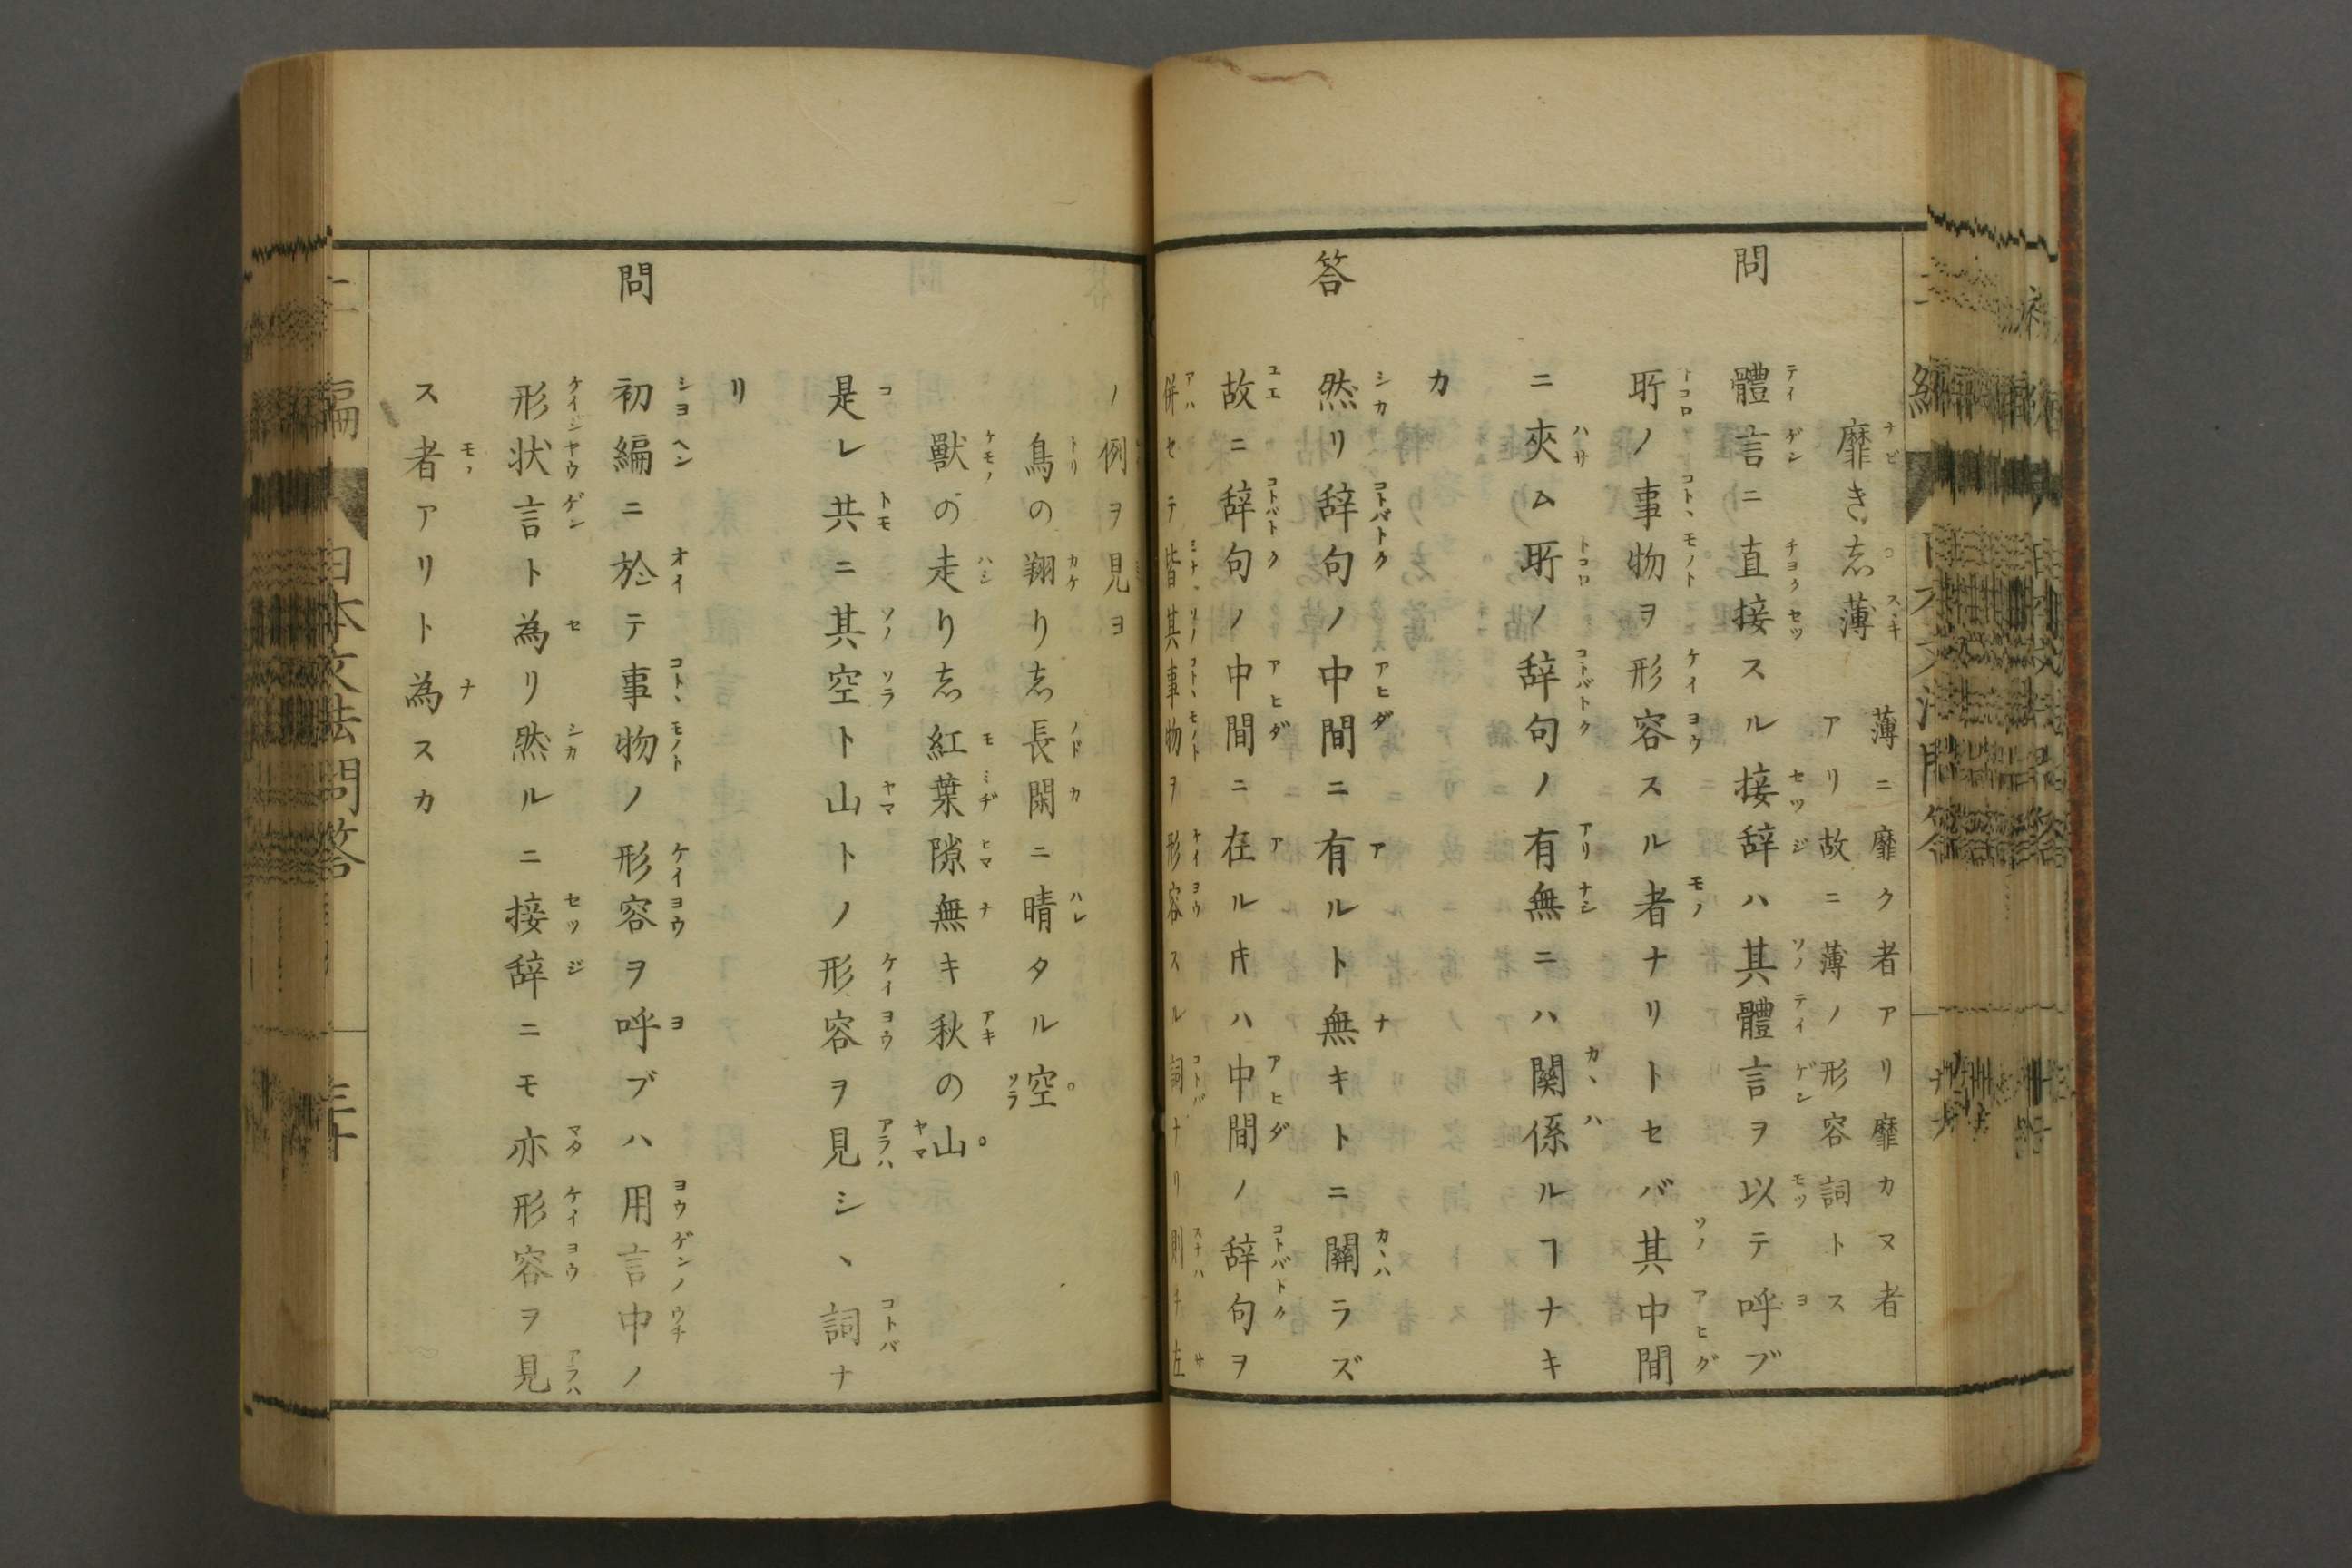 靡き志薄
薄ニ靡ク者アリ靡カヌ者
アリ故ニ薄ノ形容詞トス
問
體言ニ直接スル接辞ハ其體言ヲ以テ呼ブ
所ノ事物ヲ形容スル者ナリトセバ其中間
ニ夾ム所ノ辞句ノ有無ニハ関係ルヿナキ
カ
答
然リ辞句ノ中間ニ有ルト無キトニ関ラズ
故ニ辞句ノ中間ニ在ルキハ中間ノ辞句ヲ
併セテ皆其事物ヲ形容スル詞ナリ則チ左
ノ例ヲ見ヨ
鳥の翔り志長閑ニ晴タル空。
獣の走り志紅葉隙無キ秋の山。
是レ共ニ其空ト山トノ形容ヲ見シヽ詞ナ
リ
問
初編ニ於テ事物ノ形容ヲ呼ブハ用言中ノ
形状言ト為リ然ルニ接辞ニモ亦形容ヲ見
ス者アリト為スカ
二編
日本文法問答